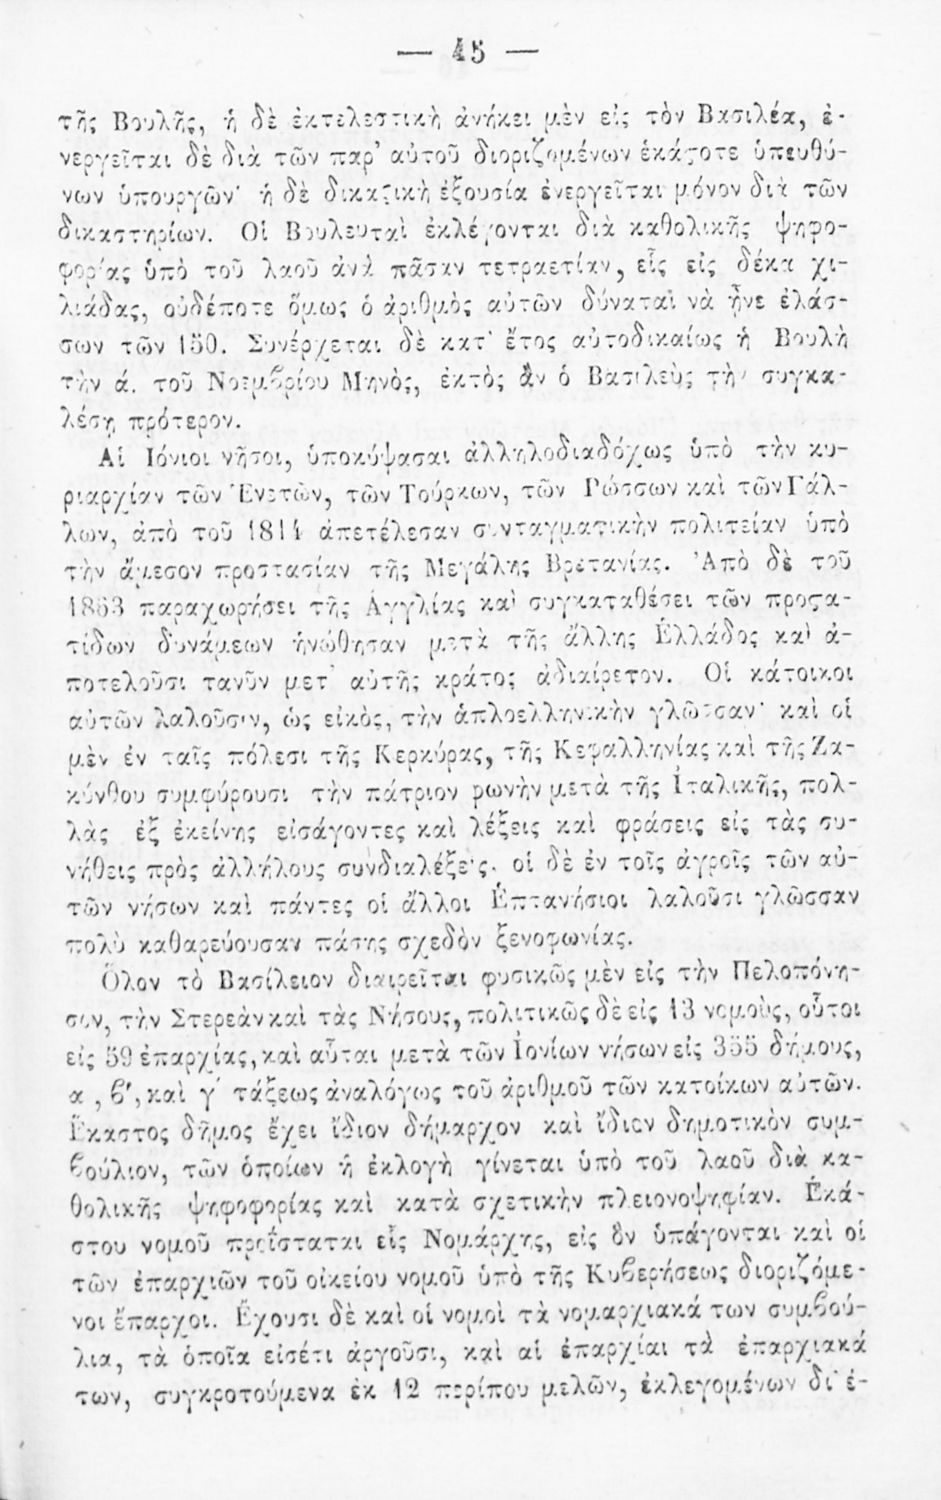 — 45 —
τῆς Βουλῆς, ἡ δὲ ἐκτελεστικὴ ἀνήκει μὲν εἰς τὸν Βασιλέα, ἐ-
νεργεῖται δὲ διὰ τῶν παρ' αὐτοῦ διοριζομένων ἑκάϛοτε ὑπευθύ-
νων ὑπουργῶν· ἡ δὲ δικαϛικὴ ἐξουσία ἐνεργεῖται μόνον διὰ τῶν
δικαστηρίων. Οἱ Βουλευταὶ ἐκλέγονται διὰ καθολικῆς ψηφο-
φορίας ὑπὸ τοῦ λαοῦ ἀνὰ πᾶσαν τετραετίαν, εἷς εἰς δέκα χι-
λιάδας, οὐδέποτε ὅμως ὁ ἀριθμὸς αὐτῶν δύναται νὰ ἦνε ἐλάσ-
σων τῶν 150. Συνέρχεται δὲ κατ' ἔτος αὐτοδικαίως ἡ Βουλὴ
τὴν ά. τοῦ Νοεμβρίου Μηνὸς, ἐκτὸς ἂν ὁ Βασιλεὺς τὴν συγκα-
λέσῃ πρότερον.
Αἱ Ἰόνιοι νῆσοι, ὑποκύψασαι ἀλληλοδιαδόχως ὑπὸ τὴν κυ-
ριαρχίαν τῶν Ἐνετῶν, τῶν Τούρκων, τῶν Ῥώσσων καὶ τῶν Γάλ-
λων, ἀπὸ τοῦ 1814 ἀπετέλεσαν συνταγματικὴν πολιτείαν ὑπὸ
τὴν ἄμεσον προστασίαν τῆς Μεγάλης Βρετανίας. Ἀπὸ δὲ τοῦ
1863 παραχωρήσει τῆς Ἀγγλίας καὶ συγκαταθέσει τῶν προϛα-
τίδων δυνάμεων ἡνώθησαν μετὰ τῆς ἄλλης Ἑλλάδος καὶ ἀ-
ποτελοῦσι τανῦν μετ' αὐτῆς κράτος ἀδιαίρετον. Οἱ κάτοικοι
αὐτῶν λαλοῦσιν, ὡς εἰκὸς, τὴν ἁπλοελληνικὴν γλῶσσαν· καὶ οἱ
μὲν ἐν ταῖς πόλεσι τῆς Κερκύρας, τῆς Κεφαλληνίας καὶ τῆς Ζα-
κύνθου συμφύρουσι τὴν πάτριον φωνὴν μετὰ τῆς Ἰταλικῆς, πολ-
λὰς ἐξ ἐκείνης εἰσάγοντες καὶ λέξεις καὶ φράσεις εἰς τὰς συ-
νήθεις πρὸς ἀλλήλους συνδιαλέξεις· οἱ δὲ ἐν τοῖς ἀγροῖς τῶν αὐ-
τῶν νήσων καὶ πάντες οἱ ἄλλοι Ἑπτανήσιοι λαλοῦσι γλῶσσαν
πολὺ καθαρεύουσαν πάσης σχεδὸν ξενοφωνίας.
Ὅλον τὸ Βασίλειον διαιρεῖται φυσικῶς μὲν εἰς τὴν Πελοπόνη-
σον, τὴν Στερεὰν καὶ τὰς Νήσους, πολιτικῶς δὲ εἰς 13 νομοὺς, οὗτοι
εἰς 59 ἐπαρχίας, καὶ αὗται μετὰ τῶν Ἰονίων νήσων εἰς 355 δήμους,
α΄, ϐ΄, καὶ γ΄ τάξεως ἀναλόγως τοῦ ἀριθμοῦ τῶν κατοίκων αὐτῶν.
Ἕκαστος δῆμος ἔχει ἴδιον δήμαρχον καὶ ἴδιον δημοτικὸν συμ-
ϐούλιον, τῶν ὁποίων ἡ ἐκλογὴ γίνεται ὑπὸ τοῦ λαοῦ διὰ κα-
θολικῆς ψηφοφορίας καὶ κατὰ σχετικὴν πλειονοψηφίαν. Ἑκά-
στου νομοῦ προΐσταται εἷς Νομάρχης, εἰς ὃν ὑπάγονται καὶ οἱ
τῶν ἐπαρχιῶν τοῦ οἰκείου νομοῦ ὑπὸ τῆς Κυϐερήσεως διοριζόμε-
νοι ἔπαρχοι. Ἔχουσι δὲ καὶ οἱ νομοὶ τὰ νομαρχιακά των συμϐού-
λια, τὰ ὁποῖα εἰσέτι ἀργοῦσι, καὶ αἱ ἐπαρχίαι τὰ ἐπαρχιακά
των, συγκροτούμενα ἐκ 12 περίπου μελῶν, ἐκλεγομένων δι' ἑ-